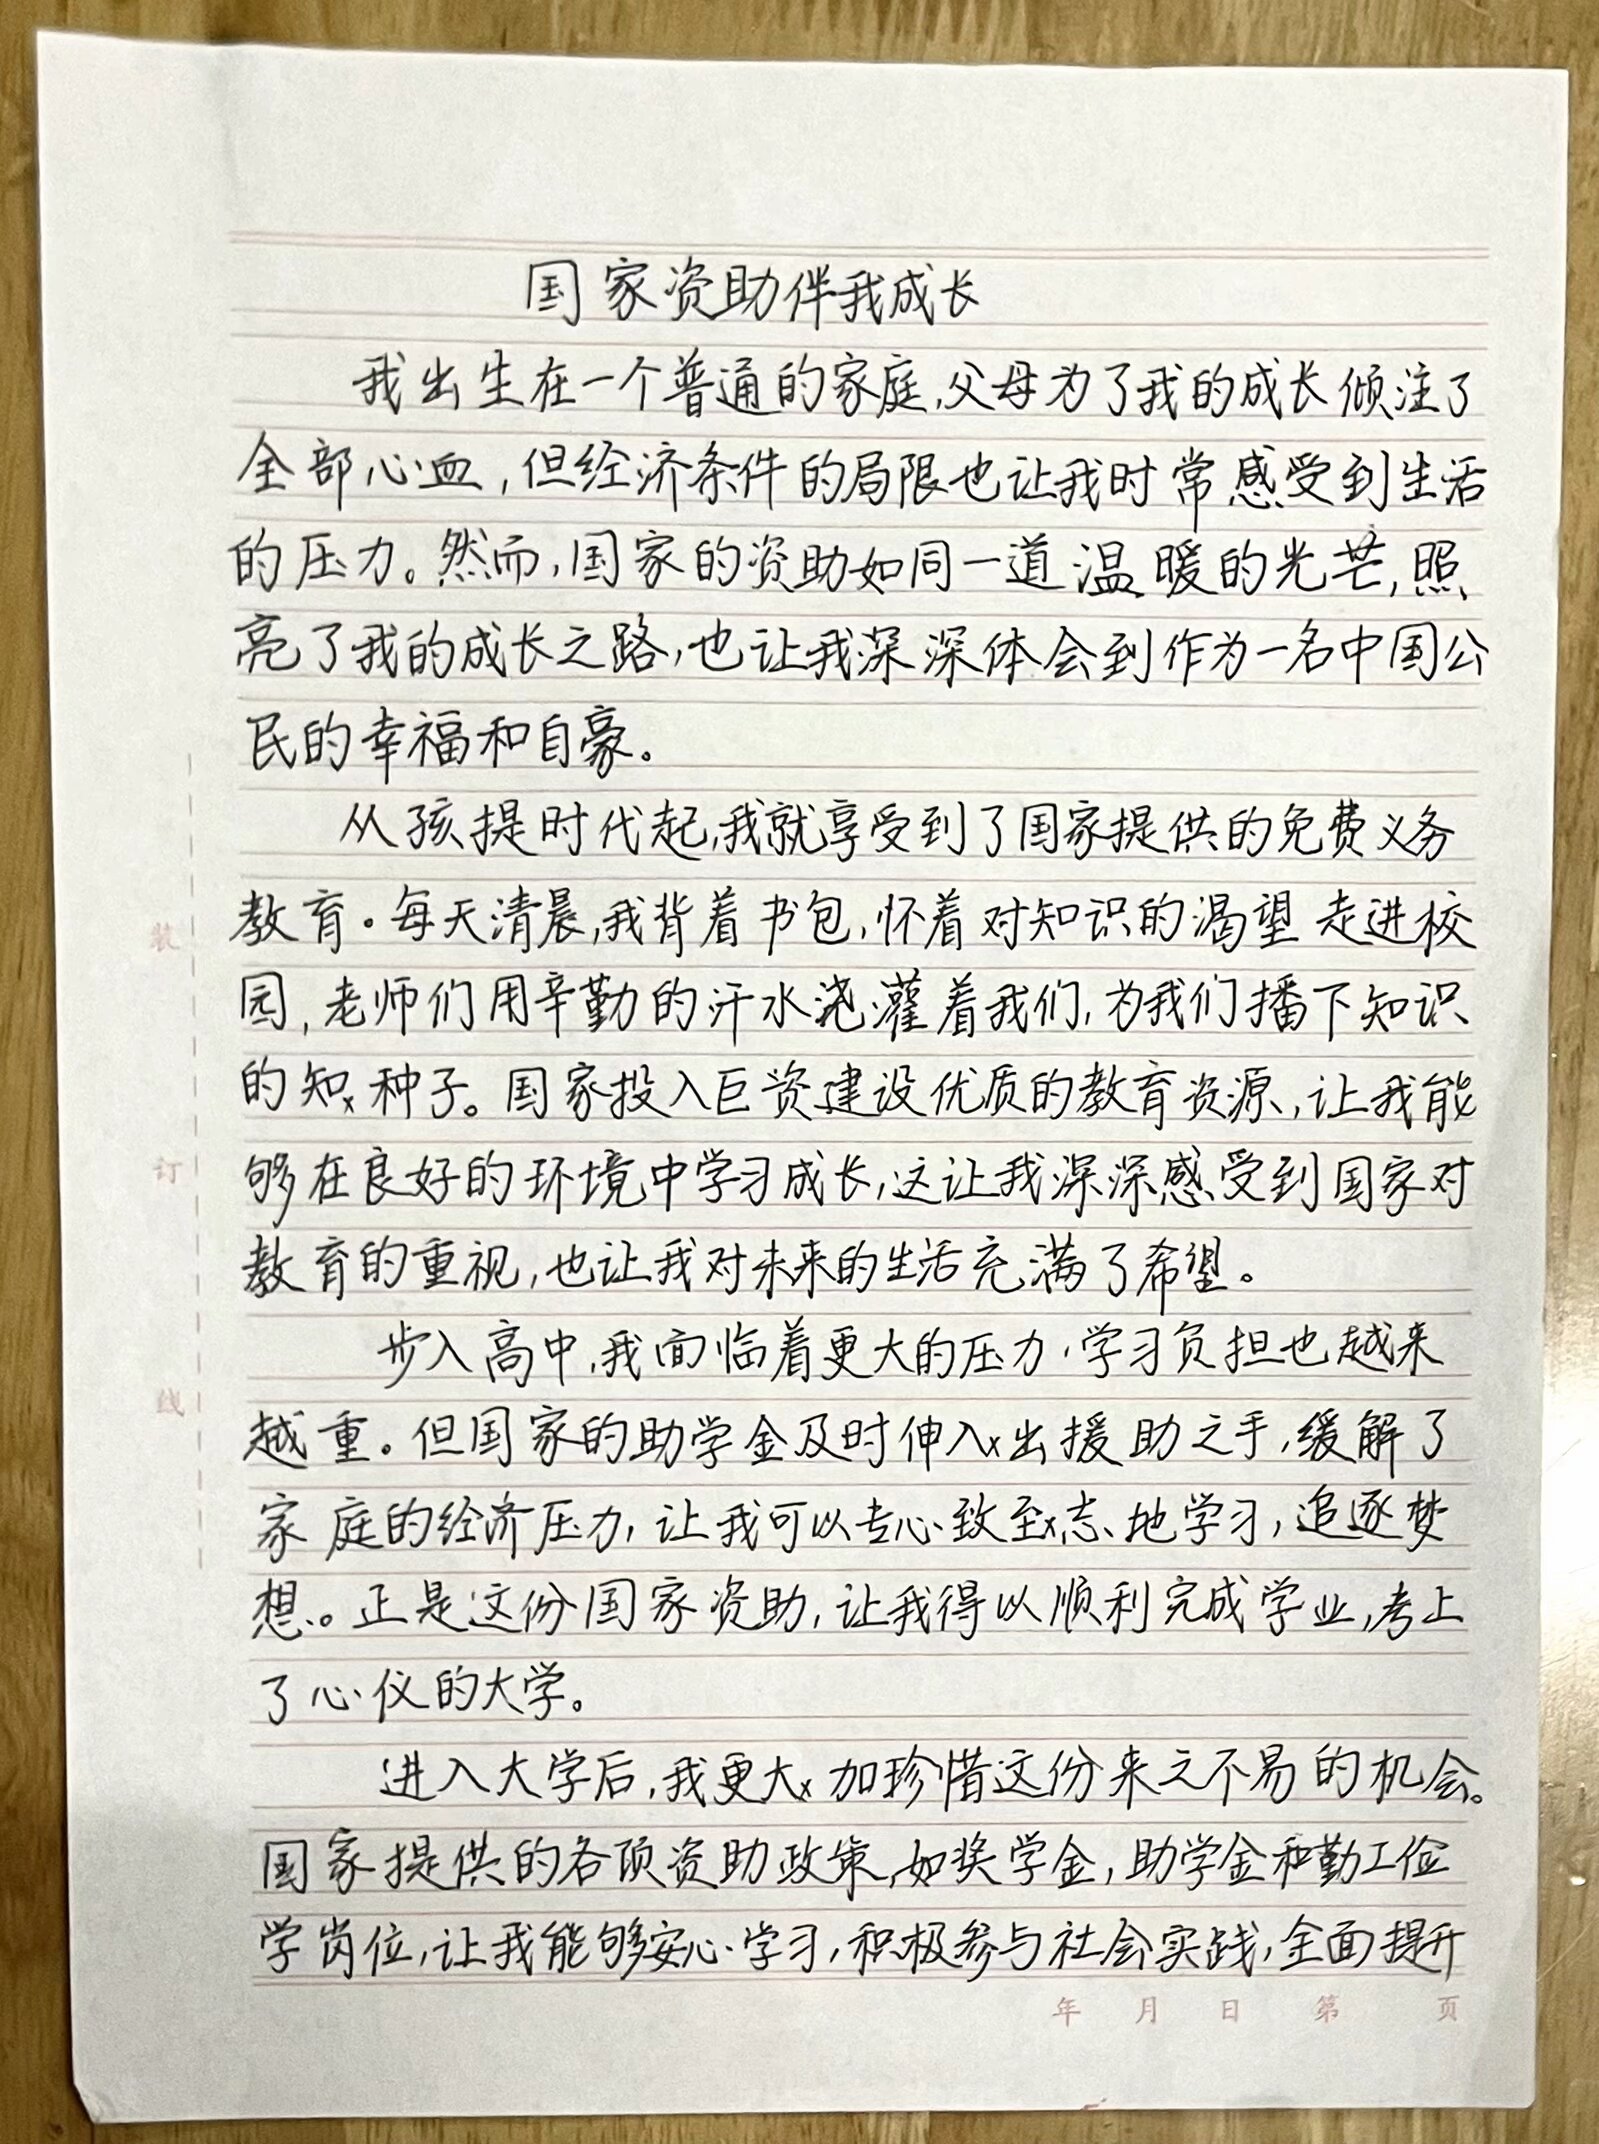 国家资助伴我成长
我出生在一个普通的家庭,父母为了我的成长倾注了
全部心血,但经济条件的局限也让我时常感受到生活
的压力。然而,国家的资助如同一道温暖的光芒,照
亮了我的成长之路,也让我深深体会到作为一名中国公
民的幸福和自豪。
从孩提时代起,我就享受到了国家提供的免费义务
教育。每天清晨,我背着书包,怀着对知识的渴望走进校
园,老师们用辛勤的汗水浇灌着我们,为我们播下知识
的知x种子。国家投入巨资建设优质的教育资源,让我能
够在良好的环境中学习成长,这让我深深感受到国家对
教育的重视,也让我对未来的生活充满了希望。
步入高中,我面临着更大的压力,学习负担也越来
越重。但国家的助学金及时伸入x出援助之手,缓解了
家庭的经济压力,让我可以专心致至x志地学习,追逐梦
想。正是这份国家资助,让我得以顺利完成学业,考上
了心仪的大学。
进入大学后,我更大x加珍惜这份来之不易的机会。
国家提供的各项资助政策,如奖学金,助学金和勤工俭
学岗位,让我能够安心学习,积极参与社会实践,全面提升
装
订
线
年 月 日 第 页